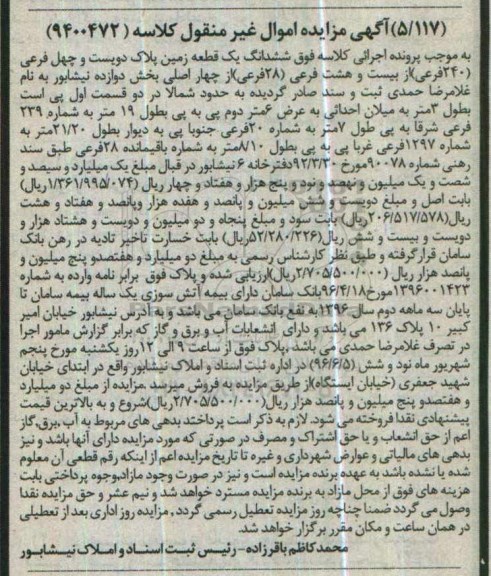 (۵/۱۱۷)آگهی مزایده اموال غیر منقول کلاسه (۹۴۰۰۴۷۲)
به موجب پرونده اجرائی کلاسه فوق ششدانگ یک قطعه زمین پلاک دویست و چهل فرعی
(۲۴۰فرعی)از بیست و هشت فرعی (۲۸فرعی)از چهار اصلی بخش دوازده نیشابور به نام
غلامرضا حمدی ثبت و سند صادر گردیده به حدود شمالا در دو قسمت اول پی است
بطول ۳متر به میلان احداثی به عرض ۶متر دوم پی به پی بطول ۱۹ متر به شماره ۲۳۹
فرعی شرقا به پی طول ۷متر به شماره ۲۰فرعی جنوبا پی به دیوار بطول ۲۱/۲۰متر به
شماره ۱۲۹۷فرعی غربا پی به پی بطول ۸/۱۰متر به شماره باقیمانده ۲۸فرعی طبق سند
رهنی شماره ۹۰۰۷۸مورخ ۹۲/۳/۳۰دفترخانه ۶نیشابور در قبال مبلغ یک میلیارد و سیصد و
شصت و یک میلیون و نهصد و نود و پنج هزار و هفتاد و چهار ریال (۱/۳۶۱/۹۹۵/۰۷۴ریال)
بابت اصل و مبلغ دویست و شش میلیون و پانصد و هفده هزار وپانصد و هفتاد و هشت
ریال(۲۰۶/۵۱۷/۵۷۸ریال) بابت سود و مبلغ پنجاه و دو میلیون و دویست و هشتاد هزار و
دویست و بیست و شش ریال(۵۲/۲۸۰/۲۲۶ریال) بابت خسارت تاخیر تادیه در رهن بانک
سامان قرار گرفته و طبق نظر کارشناس رسمی به مبلغ دو میلیارد و هفتصدو پنج میلیون و
پانصد هزار ریال (۲/۷۰۵/۵۰۰/۰۰۰ریال)ارزیابی شده و پلاک فوق برابر نامه وارده به شماره
۱۳۹۶۰۰۱۴۲۳مورخ۹۶/۴/۱۸بانک سامان دارای بیمه آتش سوزی یک ساله بیمه سامان تا
پایان سه ماهه دوم سال ۱۳۹۶به نفع بانک سامان می باشد و به آدرس نیشابور خیابان امیر
کبیر ۱۰ پلاک ۱۳۶ می باشد و دارای انشعابات آب و برق و گاز که برابر گزارش مامور اجرا
در تصرف غلامرضا حمدی می باشد ،پلاک فوق از ساعت ۹ الی ۱۲ روز یکشنبه مورخ پنجم
شهریور ماه نود و شش (۹۶/۶/۵) در اداره ثبت اسناد و املاک نیشابور واقع در ابتدای خیابان
شهید جعفری (خیابان ایستگاه)از طریق مزایده به فروش میرسد .مزایده از مبلغ دو میلیارد
و هفتصدو پنج میلیون و پانصد هزار ریال(۲/۷۰۵/۵۰۰/۰۰۰ریال)شروع و به بالاترین قیمت
پیشنهادی نقدا فروخته می شود. لازم به ذکر است پرداخت بدهی های مربوط به آب ،برق،گاز
اعم از حق انشعاب و یا حق اشتراک و مصرف در صورتی که مورد مزایده دارای آنها باشد و نیز
بدهی های مالیاتی و عوارض شهرداری و غیره تا تاریخ مزایده اعم از اینکه رقم قطعی آن معلوم
شده یا نشده باشد به عهده برنده مزایده است و نیز در صورت وجود مازاد،وجوه پرداختی بابت
هزینه های فوق از محل مازاد به برنده مزایده مسترد خواهد شد و نیم عشر و حق مزایده نقدا
وصول می گردد ضمنا چناچه روز مزایده تعطیل رسمی گردد ، مزایده روز اداری بعد از تعطیلی
در همان ساعت و مکان مقرر برگزار خواهد شد.
محمدکاظم باقرزاده - رئیس ثبت اسناد و املاک نیشابور